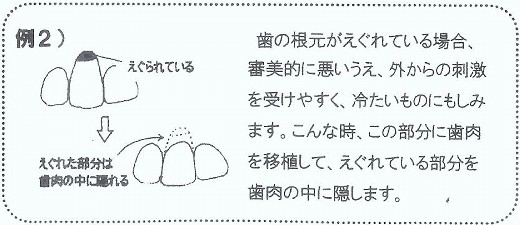 例２）
えぐられている
えぐれた部分は
歯肉の中に隠れる
歯の根元がえぐれている場合、
審美的に悪いうえ、外からの刺激
を受けやすく、冷たいものにもしみ
ます。こんな時、この部分に歯肉
を移植して、えぐれている部分を
歯肉の中に隠します。